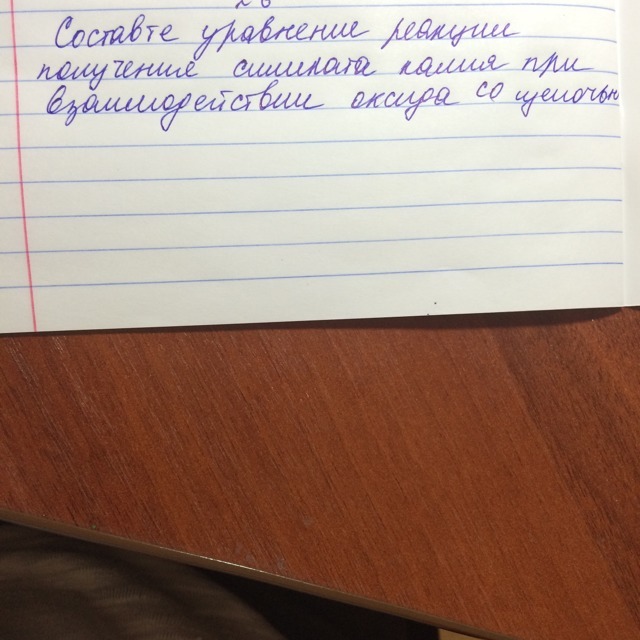 Составте уравнение реакции
получения силиката калия при
взаимодействии оксида со щелочью